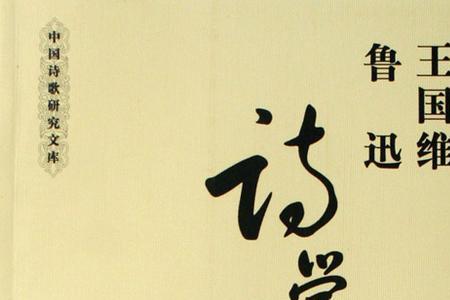 中国诗歌研究文库
王国维
鲁迅
诗学